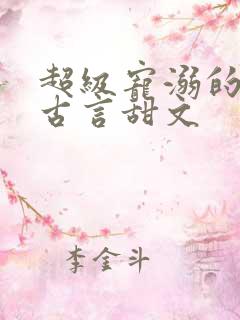 超级宠溺的
古言甜文
李金斗